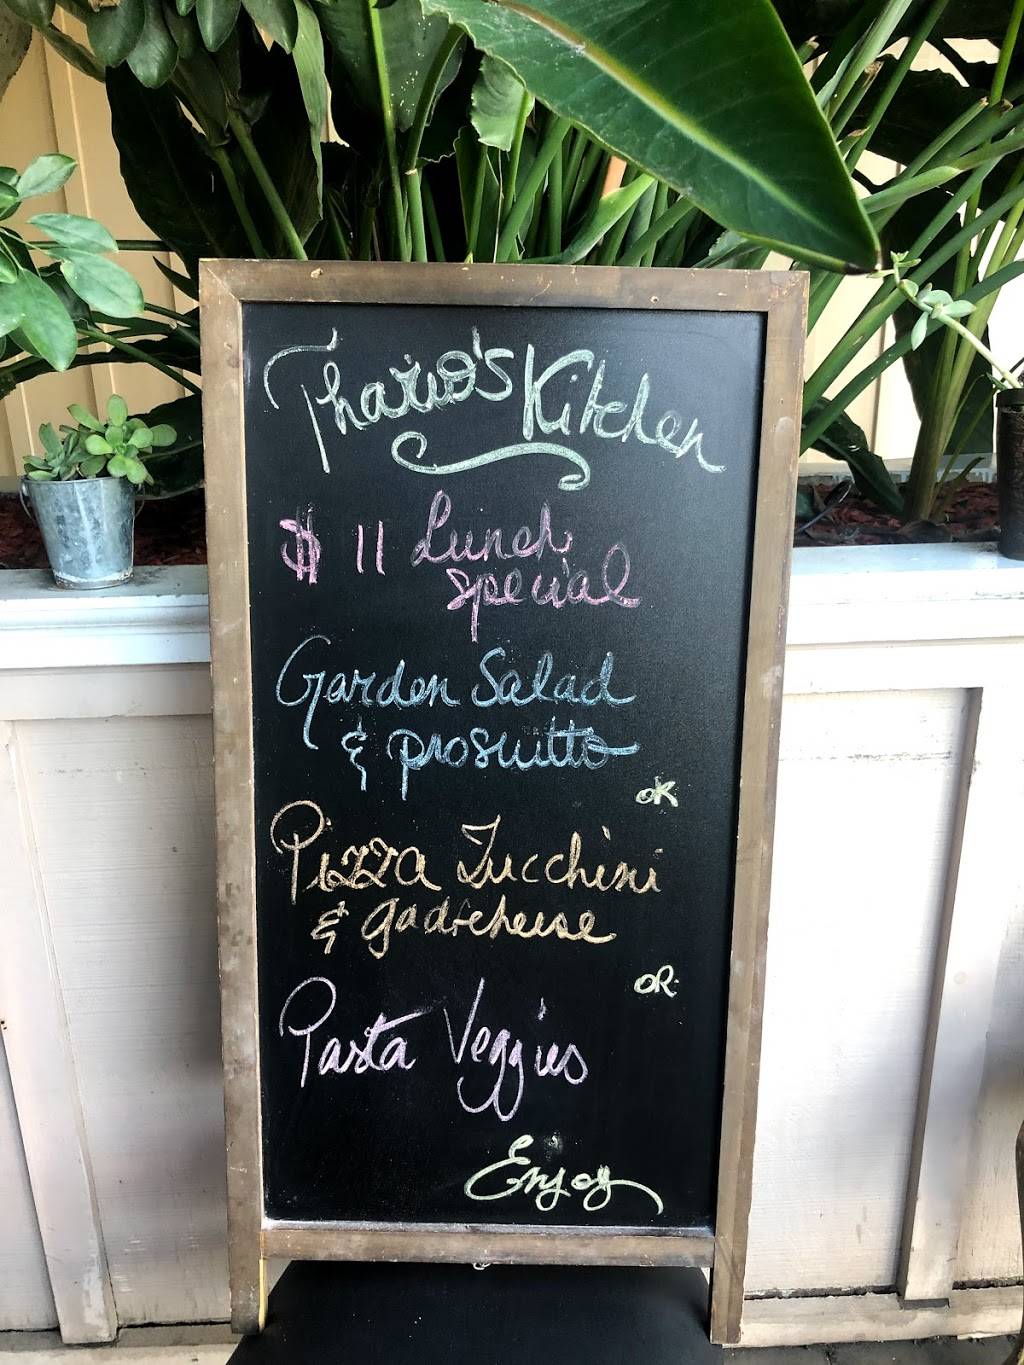 Thario's Kitchen
$11 Lunch
special
Garden Salad
& prosuitto
OR
Pizza Zucchini
&
Pasta Veggies
OR
Enjoy